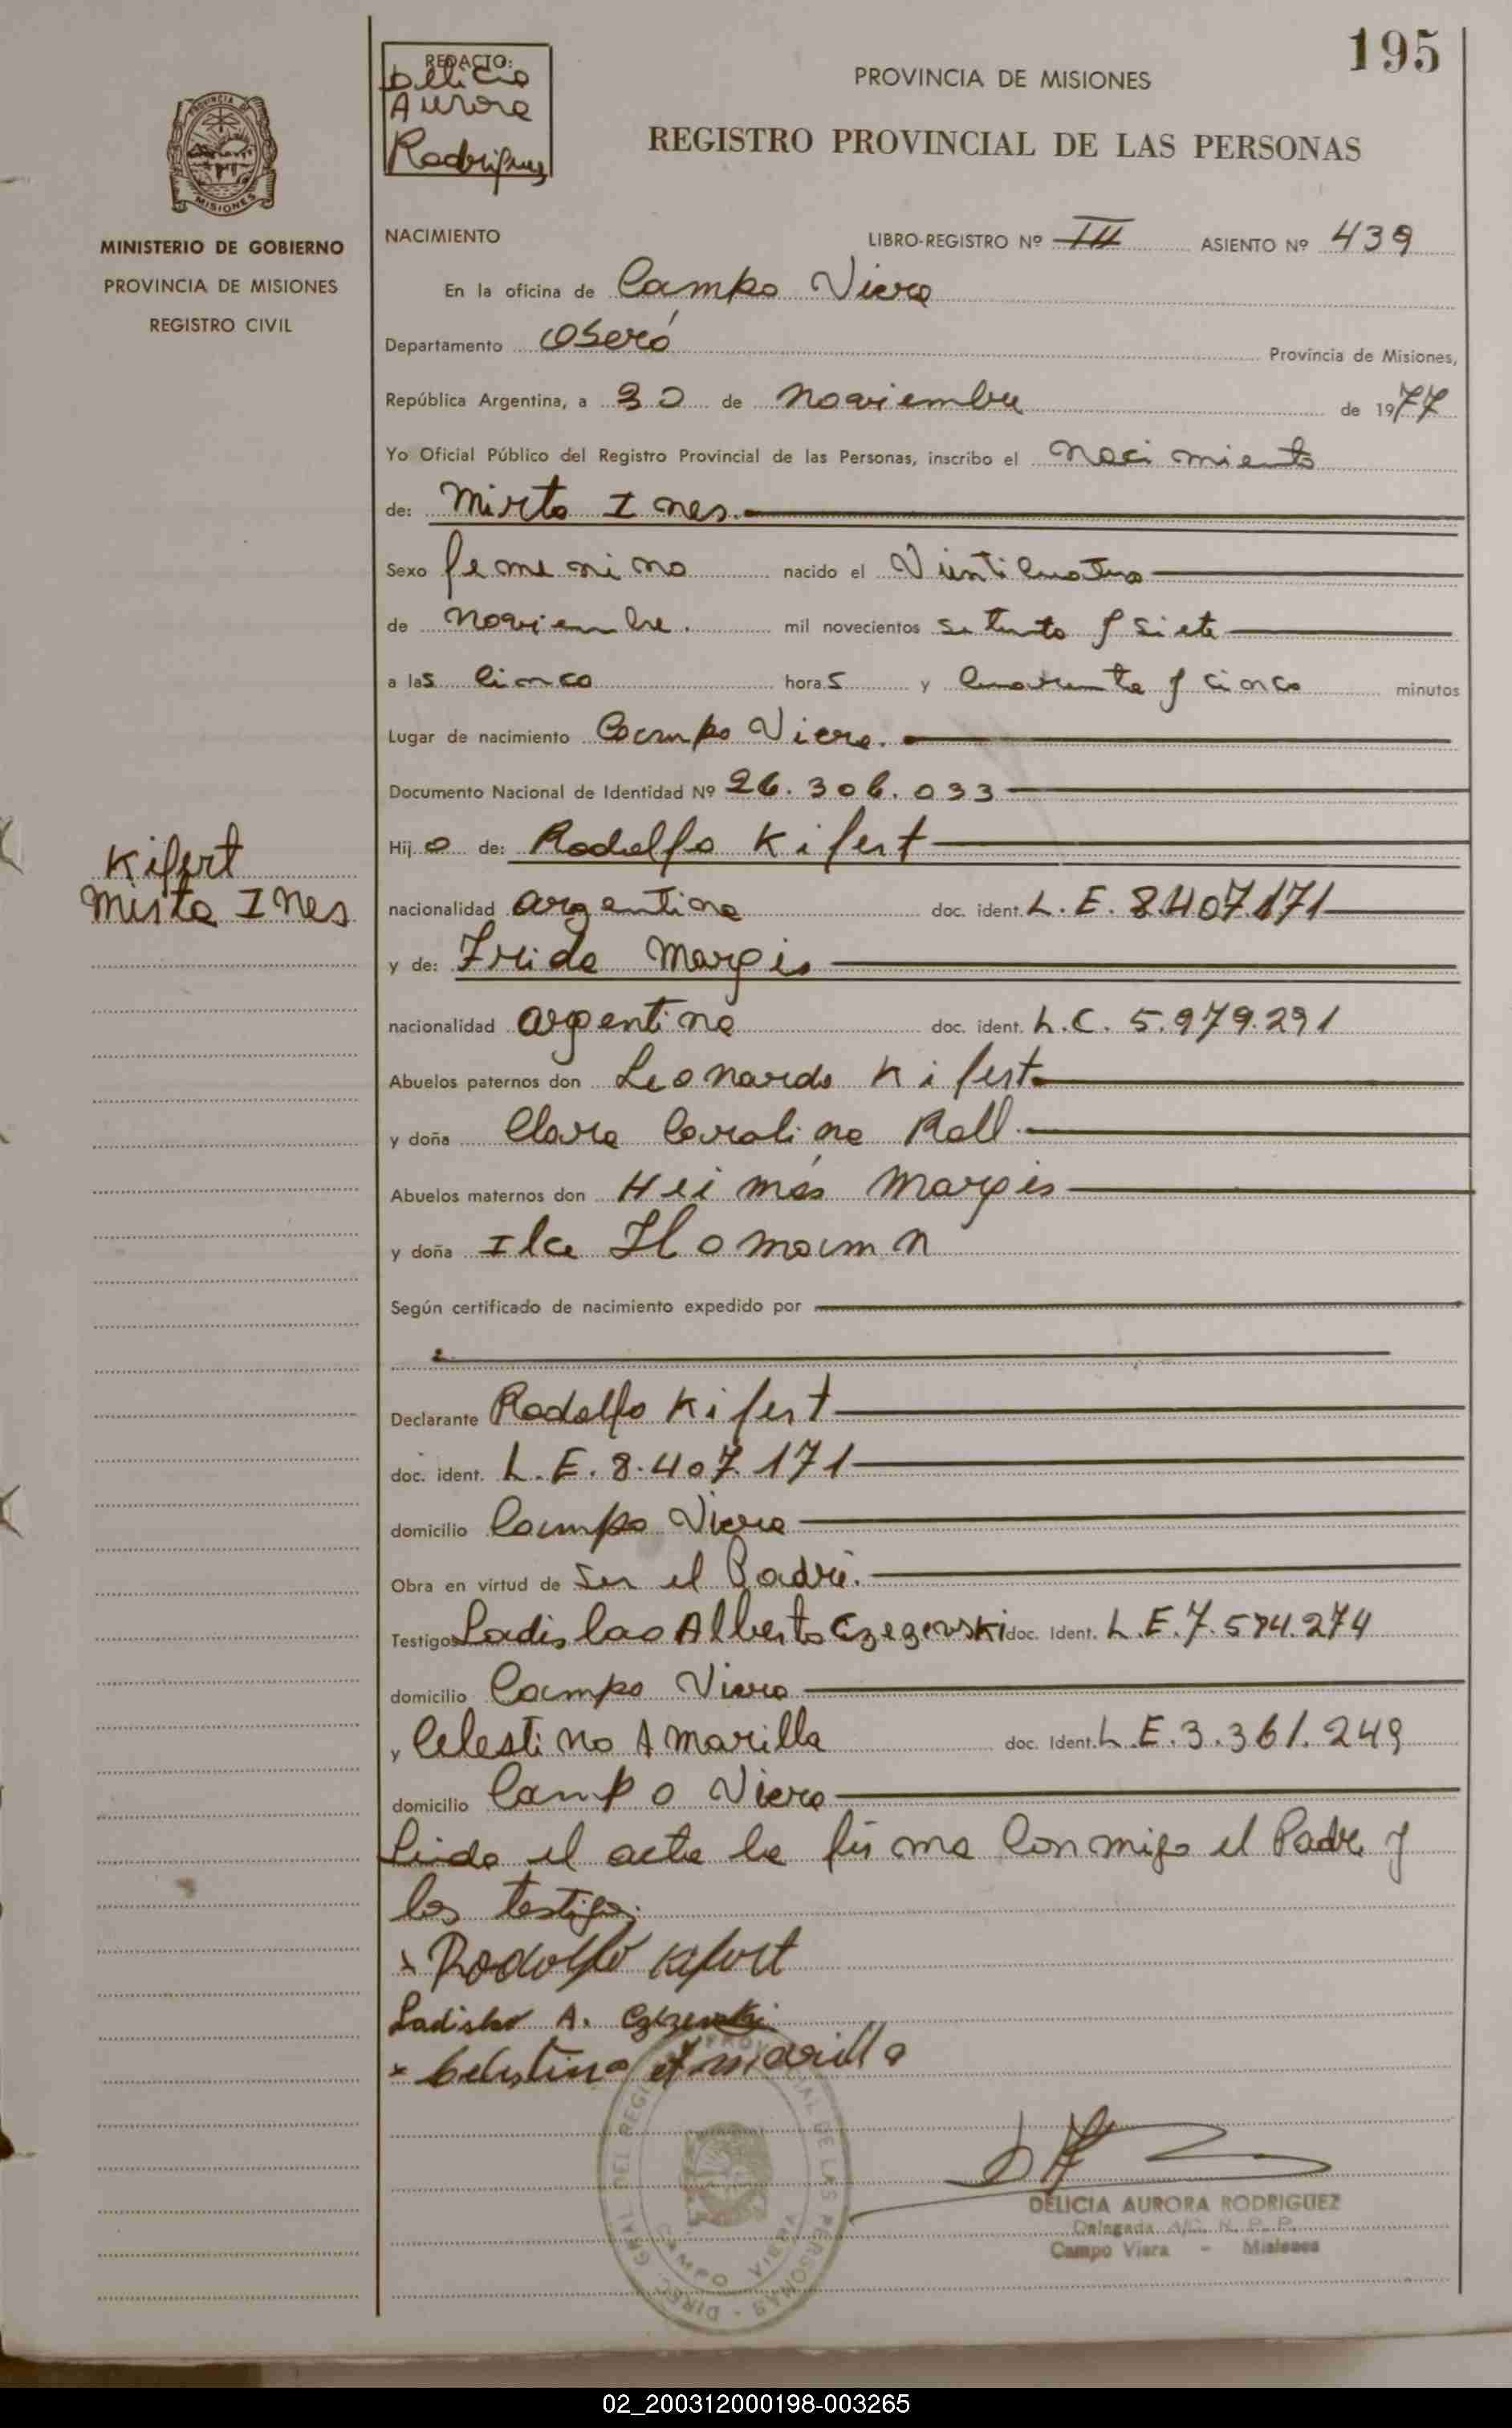 195
REDACTO:
Delicia
Aurora
Rodriguez
PROVINCIA DE MISIONES
REGISTRO PROVINCIAL DE LAS PERSONAS
PROVINCIA
MISIONES
MINISTERIO DE GOBIERNO
PROVINCIA DE MISIONES
REGISTRO CIVIL
NACIMIENTO LIBRO-REGISTRO Nº III ASIENTO Nº 439
En la oficina de Campo Viera
Departamento Oberá Provincia de Misiones,
República Argentina, a 30 de Noviembre de 1977
Yo Oficial Público del Registro Provincial de las Personas, inscribo el Nacimiento
de: Mirta Ines.
Sexo femenino nacido el Vinticuatro
de Noviembre. mil novecientos setenta y siete
a las cinco horas y cuarenta y cinco minutos
Lugar de nacimiento Campo Viera.
Documento Nacional de Identidad Nº 26.306.033
Hij a de: Rodolfo Kifert
Kifert
Mirta Ines
nacionalidad argentina doc. ident. L.E. 8.407.171
y de: Frida Margis
nacionalidad argentina doc. ident. L.C. 5.979.291
Abuelos paternos don Leonardo Kifert
y doña Clara Carolina Roll.
Abuelos maternos don Margis
y doña
Según certificado de nacimiento expedido por
Declarante Rodolfo Kifert
doc. ident. L.E. 8.407.171
domicilio Campo Viera
Obra en virtud de Ser el Padre.
Testigos Ladislao Alberto Czezevski doc. Ident. L.E. 7.574.274
domicilio Campo Viera
y Celestino Amarilla doc. Ident. L.E. 3.361.249
domicilio Campo Viera
Leida el acta la firma conmigo el Padre y
los testigos.
x Rodolfo Kifert
Ladislao A.
x Celestino Amarilla
DELICIA AURORA RODRIGUEZ
Delegada A/C. R. P. P.
Campo Viera - Misiones
DIREC. GRAL. DEL REGISTRO PROVINCIAL DE LAS PERSONAS
CAMPO VIERA
02_200312000198-003265